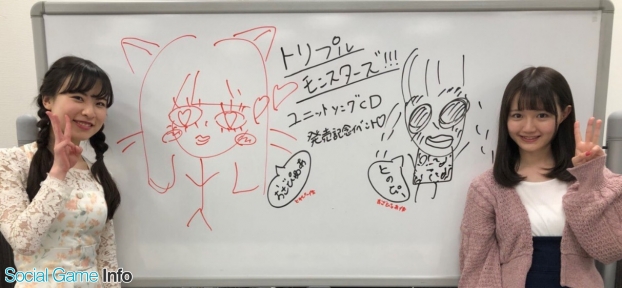 トリプル
モンスターズ!!!
ユニットソングCD
発売記念イベント♡
とのぴ。
Social Game Info